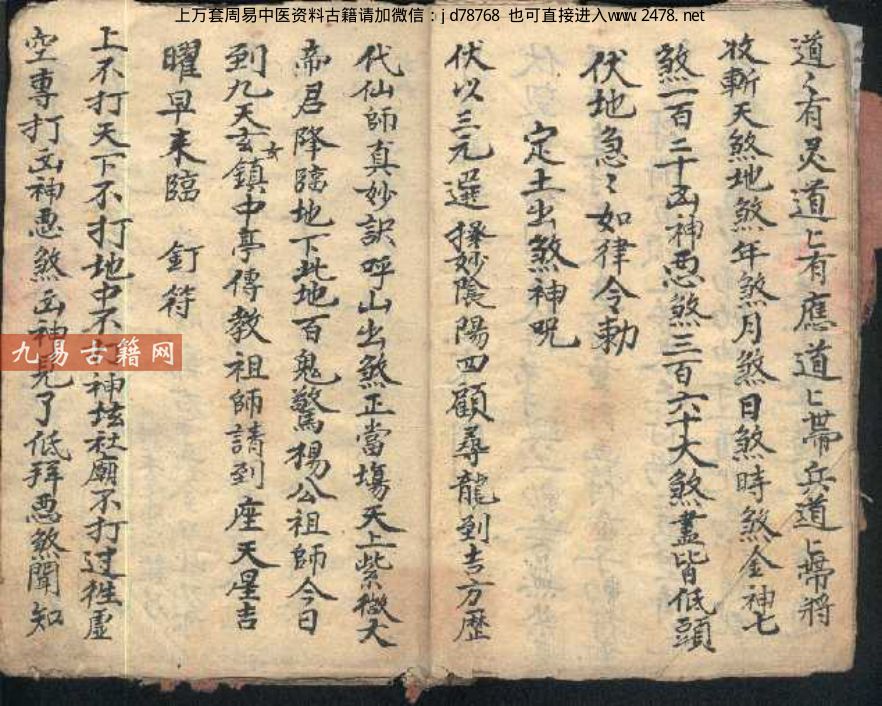 上万套周易中医资料古籍请加微信：jd78768 也可直接进入www.2478.net
道〻有灵道〻有應道〻帶兵道〻帶將
斬天煞地煞年煞月煞日煞時煞金神七
煞一百二十凶神恶煞三百六十大煞盡皆低頭
伏地急〻如律令勅
定土出煞神咒
伏以三元選擇妙陰陽四顧尋龍到吉方歷
代仙師真妙訣呼山出煞正當塲天上紫微大
帝君降臨地下此地百鬼驚楊公祖師今日
到九天玄女鎮中亭傳教祖師請到座天星吉
曜早来臨 釘符
上不打天下不打地中不打神坛社廟不打过往虚
空專打凶神恶煞凶神見了低拜恶煞聞知
九易古籍网